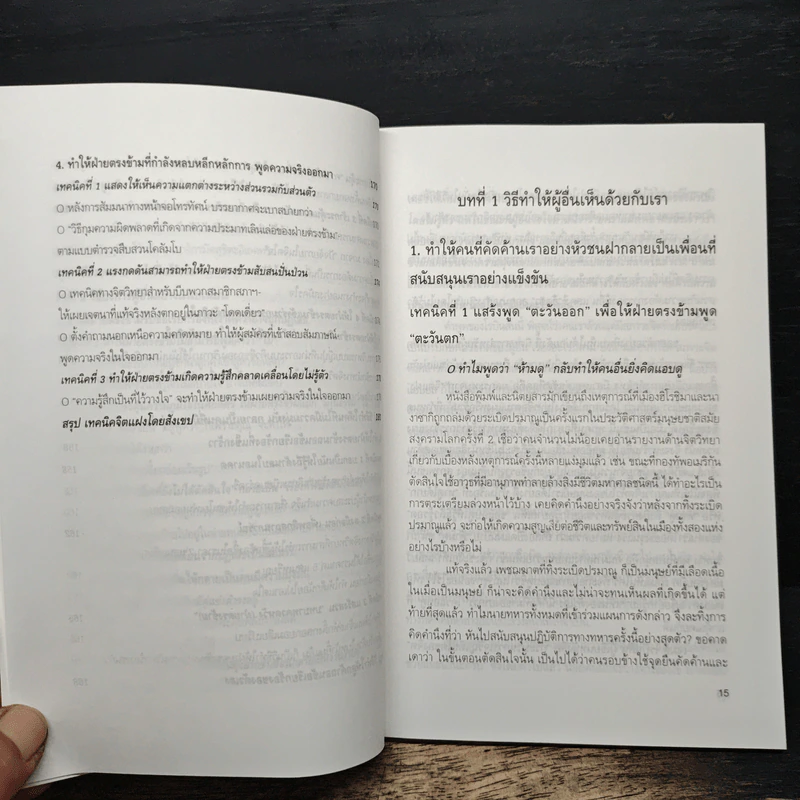 4. ทำให้ฝ่ายตรงข้ามที่กำลังหลบหลีกหลักการ พูดความจริงออกมา
เทคนิคที่ 1 แสดงให้เห็นความแตกต่างระหว่างส่วนรวมกับส่วนตัว
O หลังการสัมมนาทางหน้าจอโทรทัศน์ บรรยากาศจะเบาสบายกว่า
O "วิธีกุมความผิดพลาดที่เกิดจากความประมาทเลินเล่อของฝ่ายตรงข้าม"
ตามแบบตำรวจสืบสวนโคลัมโบ
เทคนิคที่ 2 แรงกดดันสามารถทำให้ฝ่ายตรงข้ามสับสนปั่นป่วน
O เทคนิคทางจิตวิทยาสำหรับบีบพวกสมาชิกสภาฯ
ให้เผยเจตนาที่แท้จริงหลังตกอยู่ในภาวะ "โดดเดี่ยว"
O ตั้งคำถามนอกเหนือความคาดหมาย ทำให้ผู้สมัครที่เข้าสอบสัมภาษณ์
พูดความจริงในใจออกมา
เทคนิคที่ 3 ทำให้ฝ่ายตรงข้ามเกิดความรู้สึกคลาดเคลื่อนโดยไม่รู้ตัว
O "ความรู้สึกเป็นที่ไว้วางใจ" จะทำให้ฝ่ายตรงข้ามเผยความจริงในใจออกมา
สรุป เทคนิคจิตแฝงโดยสังเขป
บทที่ 1 วิธีทำให้ผู้อื่นเห็นด้วยกับเรา
1. ทำให้คนที่คัดค้านเราอย่างหัวชนฝากลายเป็นเพื่อนที่
สนับสนุนเราอย่างแข็งขัน
เทคนิคที่ 1 แสร้งพูด "ตะวันออก" เพื่อให้ฝ่ายตรงข้ามพูด
"ตะวันตก"
O ทำไมพูดว่า "ห้ามดู" กลับทำให้คนอื่นยิ่งคิดแอบดู
หนังสือพิมพ์และนิตยสารมักเขียนถึงเหตุการณ์ที่เมืองฮิโรชิมาและนา
งาซากิถูกถล่มด้วยระเบิดปรมาณูเป็นครั้งแรกในประวัติศาสตร์มนุษยชาติสมัย
สงครามโลกครั้งที่ 2 เชื่อว่าคนจำนวนไม่น้อยเคยอ่านรายงานด้านจิตวิทยา
เกี่ยวกับเบื้องหลังเหตุการณ์ครั้งนี้หลายแง่มุมแล้ว เช่น ขณะที่กองทัพอเมริกัน
ตัดสินใจใช้อาวุธที่มีอานุภาพทำลายล้างสิ่งมีชีวิตมหาศาลชนิดนี้ ได้ทำอะไรเป็น
การตระเตรียมล่วงหน้าไว้บ้าง เคยคิดคำนึงอย่างจริงจังว่าหลังจากทิ้งระเบิด
ปรมาณูแล้ว จะก่อให้เกิดความสูญเสียต่อชีวิตและทรัพย์สินในเมืองทั้งสองแห่ง
อย่างไรบ้างหรือไม่
แท้จริงแล้ว เพชฌฆาตที่ทิ้งระเบิดปรมาณู ก็เป็นมนุษย์ที่มีเลือดเนื้อ
ในเมื่อเป็นมนุษย์ ก็น่าจะคิดคำนึงและไม่น่าจะทนเห็นผลที่เกิดขึ้นได้ แต่
ท้ายที่สุดแล้ว ทำไมนายทหารทั้งหมดที่เข้าร่วมแผนการดังกล่าว จึงละทิ้งการ
คิดคำนึงที่ว่า หันไปสนับสนุนปฏิบัติการทางทหารครั้งนี้อย่างสุดตัว? ขอคาด
เดาว่า ในขั้นตอนตัดสินใจนั้น เป็นไปได้ว่าคนรอบข้างใช้จุดยืนคัดค้านและ
15